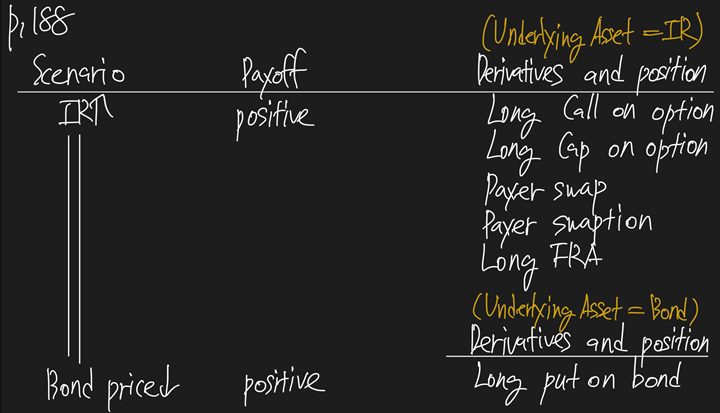 p.188
(Underlying Asset = IR)
Scenario Payoff Derivatives and position
IR↑ positive Long Call on option
Long Cap on option
Payer swap
Payer swaption
Long FRA
(Underlying Asset = Bond)
Derivatives and position
Bond price↓ positive Long put on bond